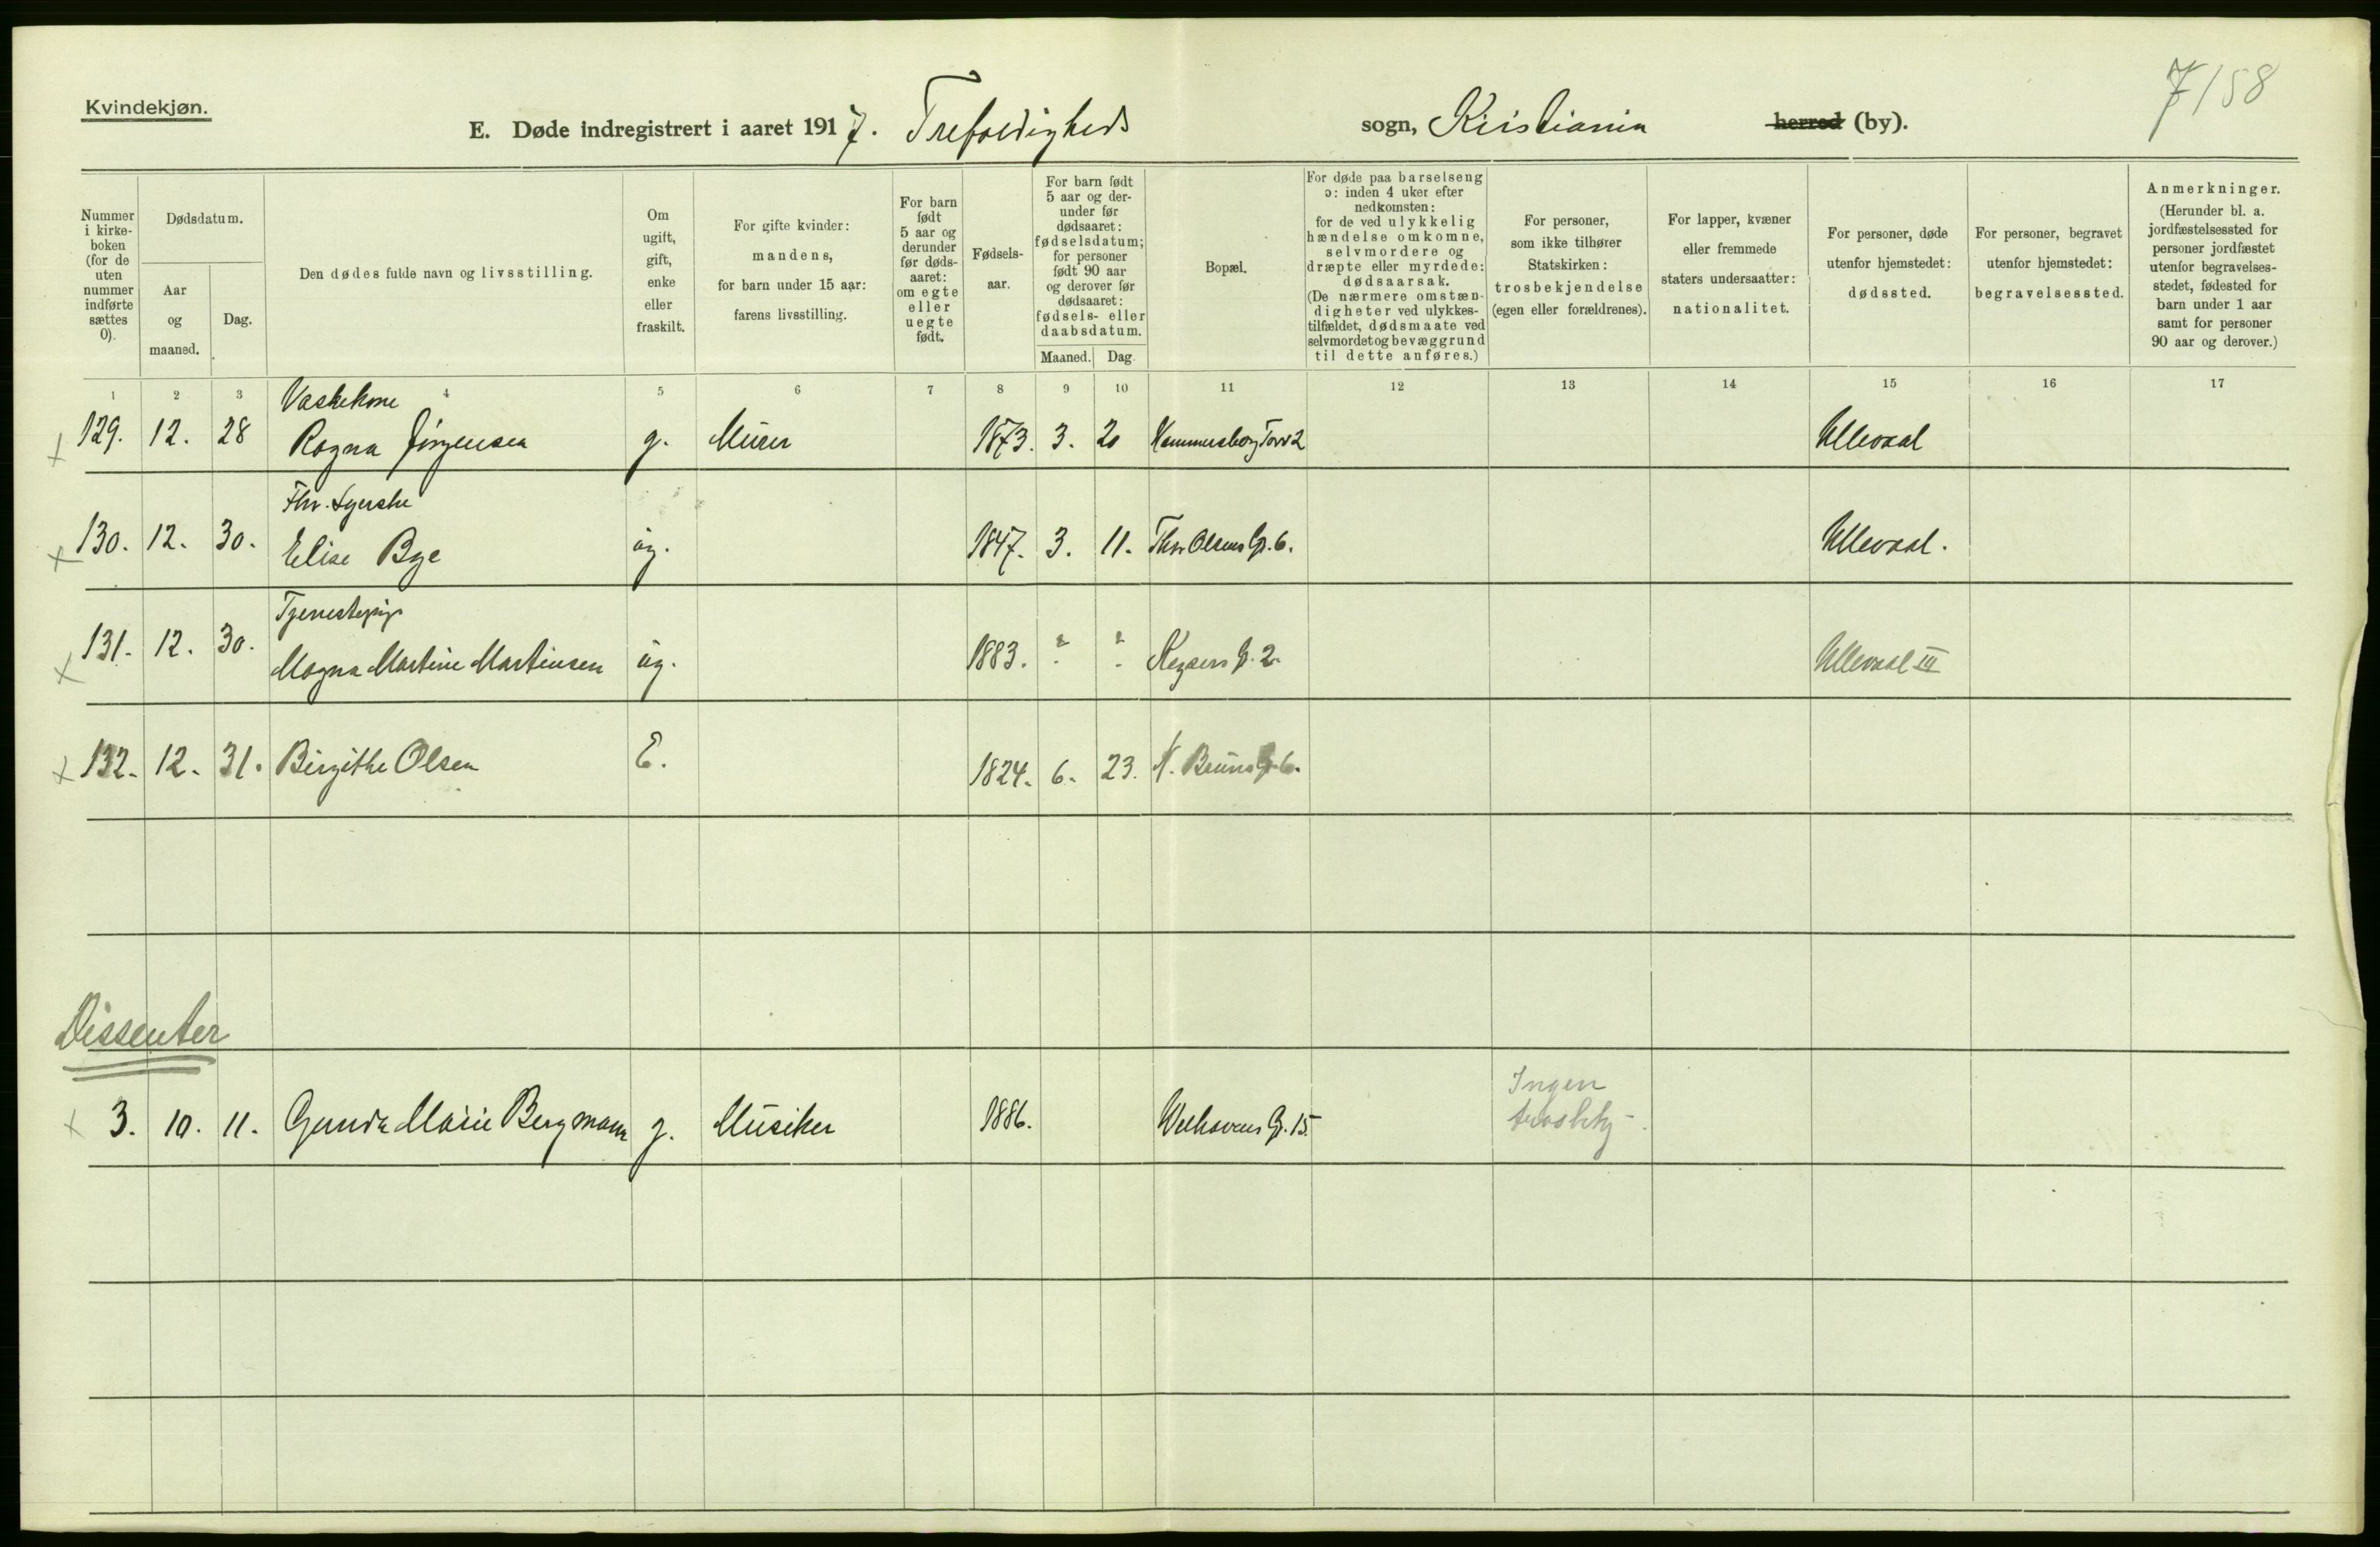 7/58
Kvindekjøn.
E. Døde indregistrert i aaret 1917. Trefoldigheds sogn, Kristiania herred (by).
Nummer i kirke-boken (for de uten nummer indførte sættes 0).
Dødsdatum.
Aar og maaned.
Dag.
Den dødes fulde navn og livsstilling.
Om ugift, gift, enke eller fraskilt.
For gifte kvinder: mandens, for barn under 15 aar: farens livsstilling.
For barn født 5 aar og derunder før døds-aaret: om egte eller uegte født.
Fødsels-aar.
For barn født 5 aar og der-under før dødsaaret: fødselsdatum; for personer født 90 aar og derover før dødsaaret: fødsels- eller daabsdatum.
Maaned. Dag.
Bopæl.
For døde paa barselseng ɔ: inden 4 uker efter nedkomsten: for de ved ulykkelig hændelse omkomne, selvmordere og dræpte eller myrdede: dødsaarsak. (De nærmere omstæn-digheter ved ulykkes-tilfældet, dødsmaate ved selvmordet og bevæggrund til dette anføres.)
For personer, som ikke tilhører Statskirken: trosbekjendelse (egen eller forældrenes).
For lapper, kvæner eller fremmede staters undersaatter: nationalitet.
For personer, døde utenfor hjemstedet: dødssted.
For personer, begravet utenfor hjemstedet: begravelsessted.
Anmerkninger. (Herunder bl. a. jordfæstelsessted for personer jordfæstet utenfor begravelses-stedet, fødested for barn under 1 aar samt for personer 90 aar og derover.)
1 2 3 4 5 6 7 8 9 10 11 12 13 14 15 16 17
Vaskekone
129. 12. 28 Ragna Jørgensen g. Murer 1873. 3. 20 Hammersborg Torv 2 Ullevaal
Fhv. Syerske
130. 12. 30. Elise Bye ug. 1847. 3. 11. Thv. Olsens G. 6. Ullevaal.
Tjenestepige
131. 12. 30. Magna Martine Martinsen ug. 1883. ? ? Keysers G. 2. Ullevaal III
132. 12. 31. Birgithe Olsen E. 1824. 6. 23. N. Bruns G. 6.
Dissenter
Ingen
3. 10. 11. Gunda Marie Bergmann g. Musiker 1886. Welhavens G. 15. trosbkj-